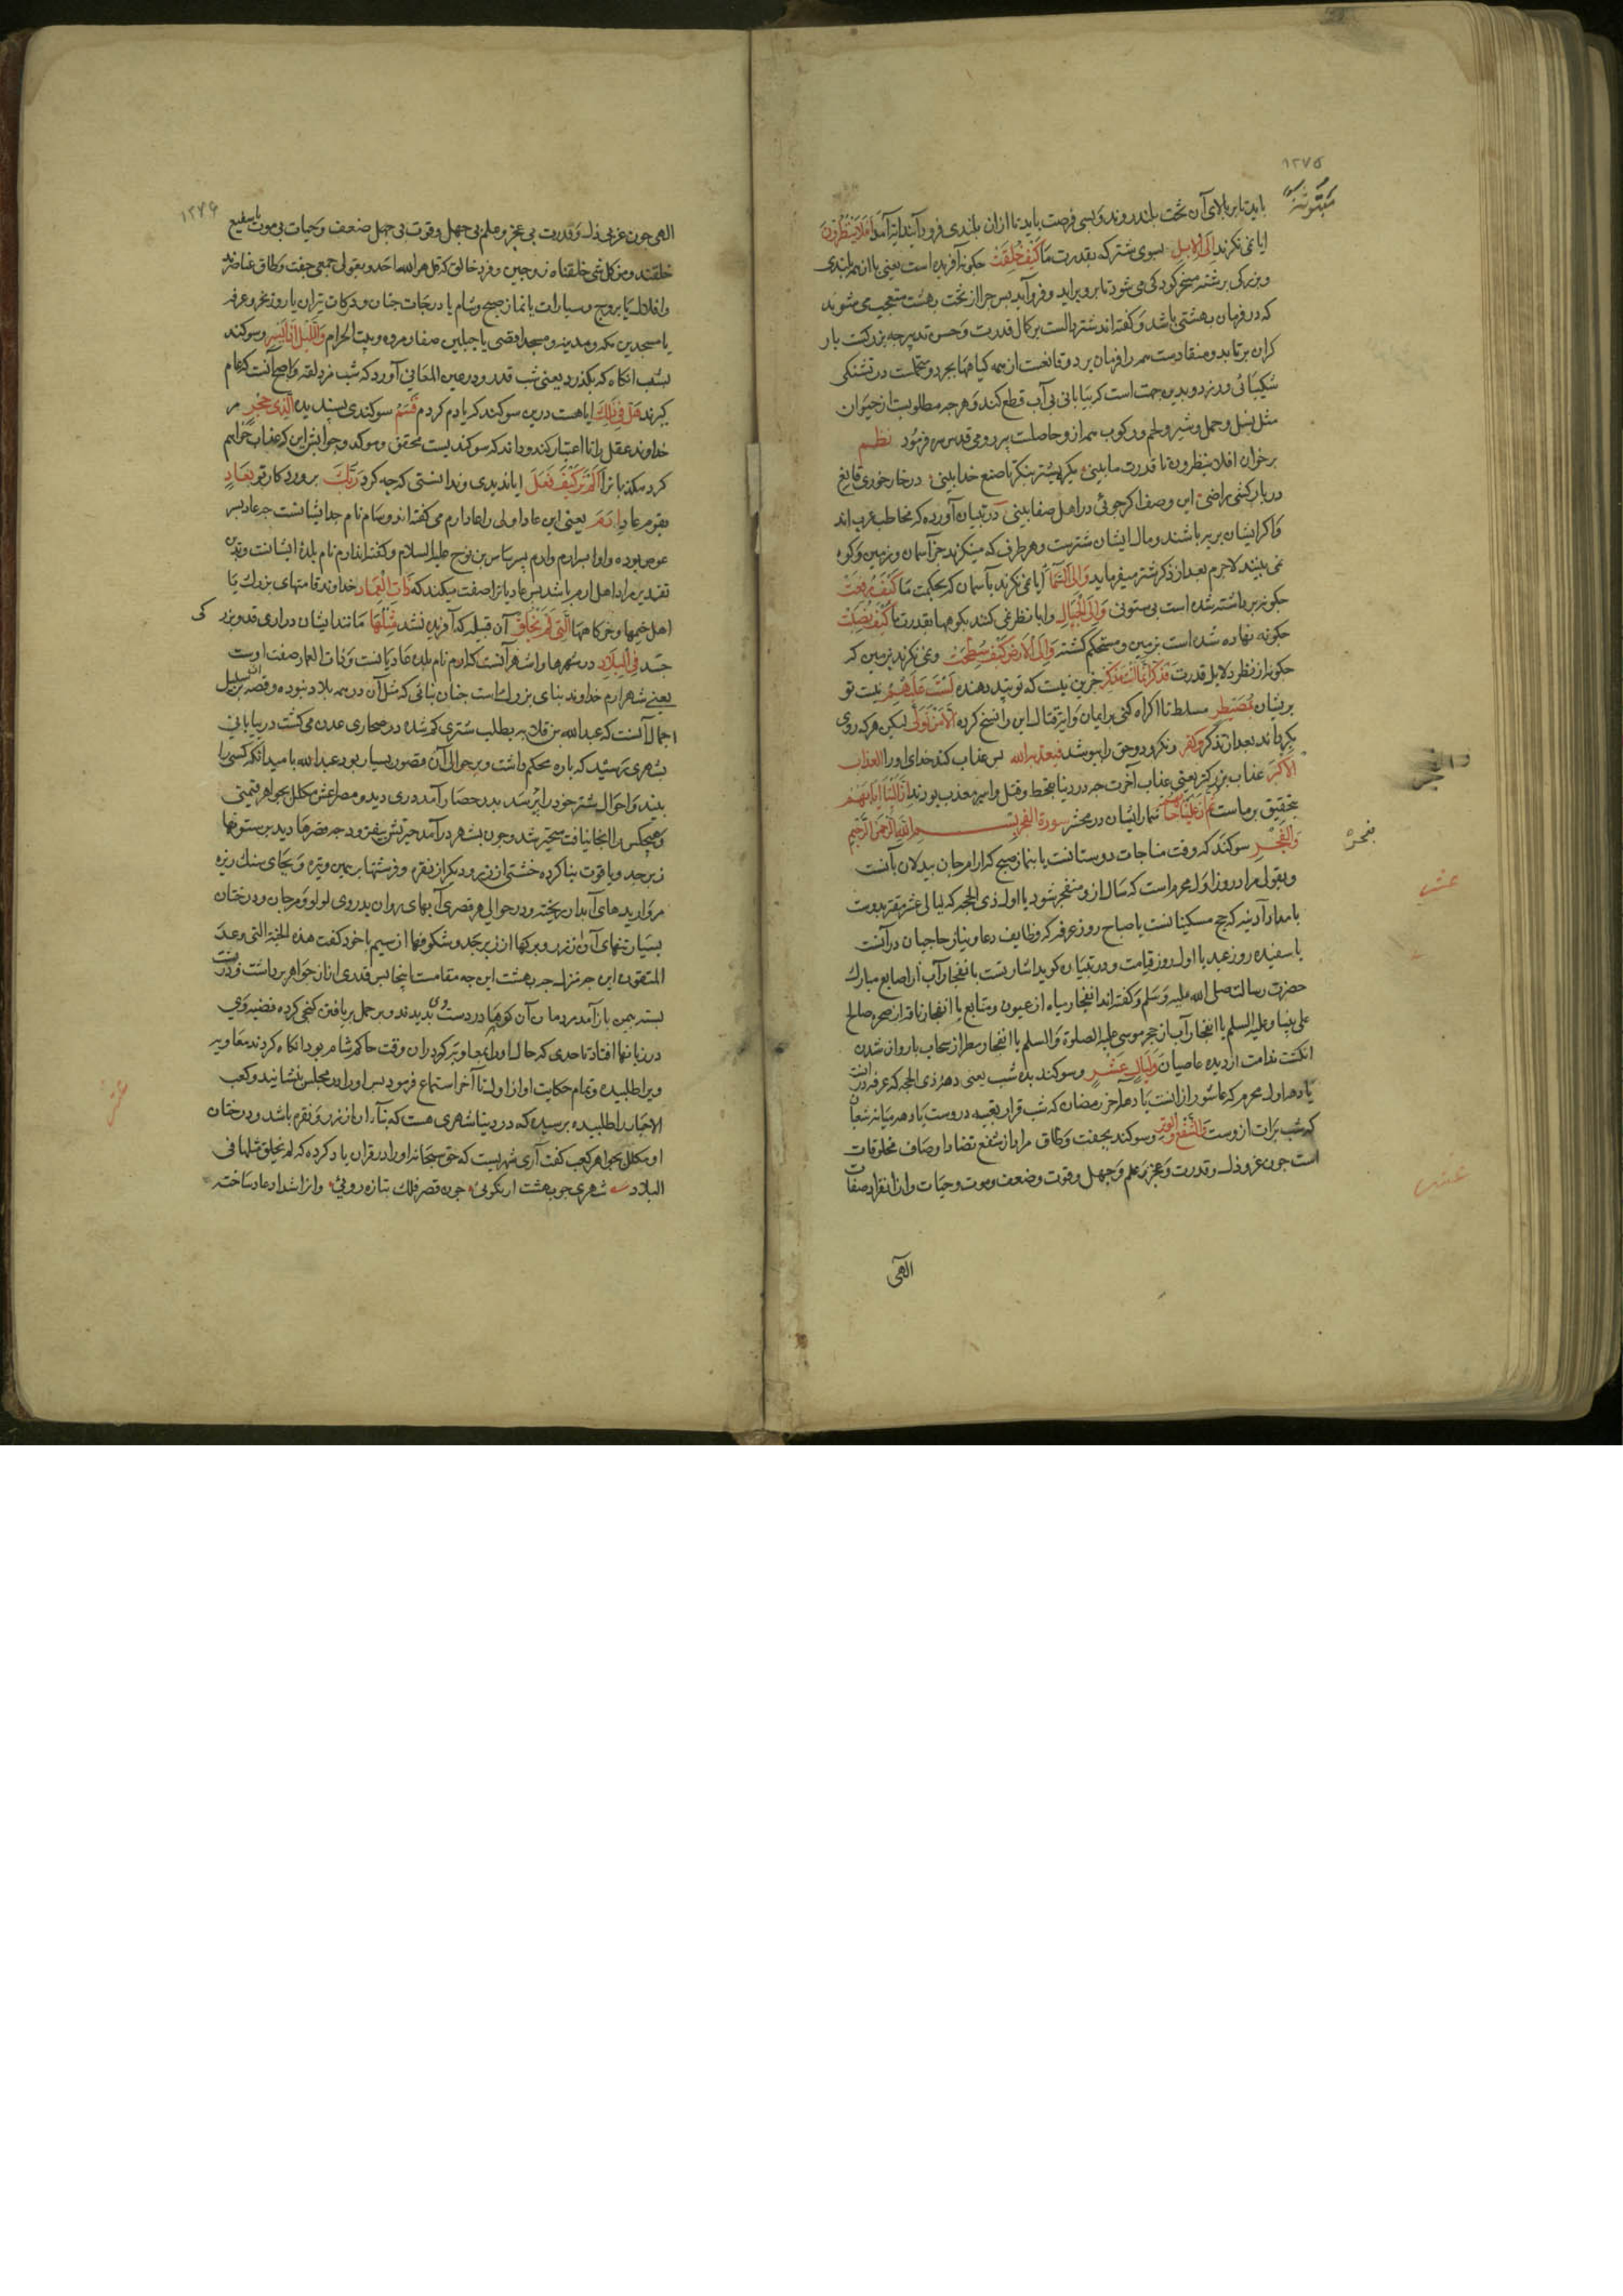 ١٢٧٥
باید تا بر بالای آن تخت بلند روند و بسی فرصت باید تا ازان بلندی فرود آیند آیه آمد أَفَلَا يَنْظُرُونَ
ایا نمی نکرند إِلَى الْإِبِلِ بسوی شتر که بقدرت ما كَيْفَ خُلِقَتْ چکونه آفریده است یعنی با این همه بلندی
و بزرکی برشته مسخر کودکی می شود تا برو براید و فرو آید پس چرا از تخت بهشت متعجب می شوند
که در فرمان بهشتی باشد و کفته اند شتر دالست بر کمال قدرت و حسن تدبیر چه بزرکست بار
کران برتابد و منقادست همه را فرمان برد و قانعست از همه کیاهها بچرد و متحملست در تشنکی
شکیبائی ورزد و بدین جهت است که بیابانی بی آب قطع کند و هر چه مطلوبست از حیوان
مثل نسل و حمل و شیر و لحم و رکوب همه از و حاصلست پیر رومی قدس سره فرمود نظم
برخوان افلا ینظرون تا قدرت ما بینی یکره بشتر بنکر تا صنع خدا بینی در خار خوری قانع
در بار کشی راضی این وصف اکر جوئی در اهل صفا بینی در تبیان آورده که مخاطب عرب اند
و اکر ایشان بریر باشند و مال ایشان شترست و هر طرف که مینکرند جز آسمان و زمین و کوه
نمی بینند لاجرم بعد از ذکر شتر میفرماید وَإِلَى السَّمَاءِ ایا نمی نکرند بآسمان که بحکمت ما كَيْفَ رُفِعَتْ
چکونه برداشته شده است بی ستونی وَإِلَى الْجِبَالِ و ایا نظر نمی کنند بکوهها بقدرت ما كَيْفَ نُصِبَتْ
چکونه نهاده شده است بزمین و مستحکم کشته وَإِلَى الْأَرْضِ كَيْفَ سُطِحَتْ و نمی نکرند بزمین که
چکونه از نظر دلایل قدرت فَذَكِّرْ إِنَّمَا أَنْتَ مُذَكِّرٌ جزین نیست که تو پند دهنده لَسْتَ عَلَيْهِمْ نیست تو
بریشان بِمُصَيْطِرٍ مسلط تا اکراه کنی بر ایمان و ایة قتال این را نسخ کرده إِلَّا مَنْ تَوَلَّى لیکن هر که روی
بکرداند بعد از تذکر وَكَفَرَ و نکرود و حق را بپوشد فیعذبه الله پس عذاب کند خدای او را العذاب
الْأَكْبَرَ عذاب بزرکتر یعنی عذاب آخرت چه در دنیا بقحط و قتل و اسر معذب بودند إِنَّ إِلَيْنَا إِيَابَهُمْ
بتحقیق بر ماست ثُمَّ إِنَّ عَلَيْنَا حِسَابَهُمْ شمار ایشان در محشر سورة الفجر بسم الله الرحمن الرحیم
وَالْفَجْرِ سوکند که وقت مناجات دوستانست یا بنماز صبح که ارام جان بیدلان بآنست
و بقولی مراد روز اول محرم است که سال ازو منفجر شود یا اول ذی الحجه که لیالی عشر مقترن بدوست
بامداد آدینه که حج مسکینانست یا صباح روز عرفه که وظایف دعا و نیاز حاجیان در آنست
یا سفیده روز عید یا اول روز قیامت و در تبیان کوید اشارتست بانفجار آب از اصابع مبارک
حضرت رسالت صلی الله علیه وسلم و کفته اند انفجار میاه از عیون و منابع یا انفجار ناقه از صخره صالح
علی نبینا و علیه السلم یا انفجار آب از حجر موسی علیه الصلوة والسلم یا انفجار مطر از سحاب یا روان شدن
اشک ندامت از دیده عاصیان وَلَيَالٍ عَشْرٍ و سوکند بده شب یعنی دهه ذی الحجه که عرفه در انست
یا دهه اول محرم که عاشورا از انست یا دهه آخر رمضان که شب قدر ... دروست یا دهه میانه شعبان
که شب برات ازوست وَالشَّفْعِ وَالْوَتْرِ و سوکند بجفت و طاق مراد از شفع تضاد اوصاف مخلوقات
است چون عز و ذل و قدرت و عجز و علم و جهل و قوت و ضعف و موت و حیات و از وتر انفراد صفات
الهی
فجر
عشر
عشر
١٢٧۶
الهی چون عز بی ذل و قدرت بی عجز و علم بی جهل و قوت بی ضعف و حیات بی موت یا شفیع
خلقند و من کل شی خلقنا زوجین و فرد خالق که قل هو الله احد و بقول جمعی جفت و طاق عناصرند
و افلاک یا بروج و سیارات یا نماز صبح و شام یا درجات جنان و درکات نیران یا روز نحر و عرفه
یا مسجدین مکه و مدینه و مسجد اقصی یا جبلین صفا و مروه و بیت الحرام وَاللَّيْلِ إِذَا يَسْرِ و سوکند
بشب انکاه که بکذرد یعنی شب قدر و در عین المعانی آورد که شب مزدلفه و اصح آنست که عام
کیرند هَلْ فِي ذَلِكَ ایا هست درین سوکند که یادم کردم قَسَمٌ سوکندی پسندیده لِذِي حِجْرٍ مر
خداوند عقل را تا اعتبار کند و داند که سوکندیست محقق و موکد و جوابش این که عذاب خواهم
کرد مکذبانرا أَلَمْ تَرَ كَيْفَ فَعَلَ ایا ندیدی و ندانستی که چه کرد رَبُّكَ پروردکار تو بِعَادٍ
بقوم عاد إِرَمَ یعنی این عاد اولی را عاد ارم می کفته اند و سام نام جد ایشانست چه عاد پسر
عوص بوده و او پسر ارم و ارم پسر سام بن نوح علیه السلام و کفته اند ارم نام بلدۀ ایشانست و بدین
تقدیر مراد اهل ارم باشد پس عادیانرا صفت میکند که ذَاتِ الْعِمَادِ خداوند قامتهای بزرک یا
اهل خیمها و خرکاهها الَّتِي لَمْ يُخْلَقْ آن قبیله که آفریده نشد مِثْلُهَا مانند ایشان درازی قد و بزرکی
جسد فِي الْبِلَادِ در شهرها و اشهر آنست که ارم نام بلده عادیانست و ذات العماد صفت اوست
یعنی شهر ارم خداوند بنای بزرک است چنان بنائی که مثل آن در همه بلاد نبوده و قصه بر سبیل
اجمال آنست که عبدالله بن قلابه بطلب شتری کم شده در صحاری عدن می کشت در بیابانی
بشهری رسید که باره محکم داشت و بر حوالی آن قصور بسیار بود عبدالله بامید انکه کسی را
بیند و احوال شتر خود را پرسد بدر حصار آمد دری دید و مصراعش مکلل بجواهر قیمتی
و هیچکس را انجا نیافت متحیر شد و چون بشهر درآمد حیرتش بیفزود چه قصرها دید بر ستونها
زبرجد و یاقوت بنا کرده خشتی از زر و دیکر از نقره و فرشها برهمین وتیره و بجای سنک ریزه
مرواریدهای آبدار ریخته و در حوالی هر قصری آبهای روان بر روی لولو و مرجان و درختان
بسیار تنهای آن از زر و برکها از زبرجد و شکوفها از سیم با خود کفت هذه الجنة التی وعد
المتقون این چه منزله چه بهشت این چه مقامست اینجا پس قدری ازان جواهر برداشت و در پشت
بسته بیمن باز آمد مردمان آن کوهرها در دست وی بدیدند و بر حمل بر یافتن کنجی کرده قضیه وی
در زبانها افتاد تا حدی که حال او را ... در ان وقت حاکم شام بود آکاه کردند معاویه
ویرا طلبیده و تمام حکایت او از اول تا آخر استماع فرمود پس او را در مجلس بنشانید و کعب
الاحبار را طلبیده پرسید که در دنیا شهری هست که بناء آن از زر و نقره باشد و درختان
او مکلل بجواهر کعب کفت آری شهریست که حق سبحانه او را در قران یاد کرده که لم یخلق مثلها فی
البلاد شهری چو بهشت از نکوئی چون قصر فلک بتازه روئی و انرا شداد عاد ساخته
عشر